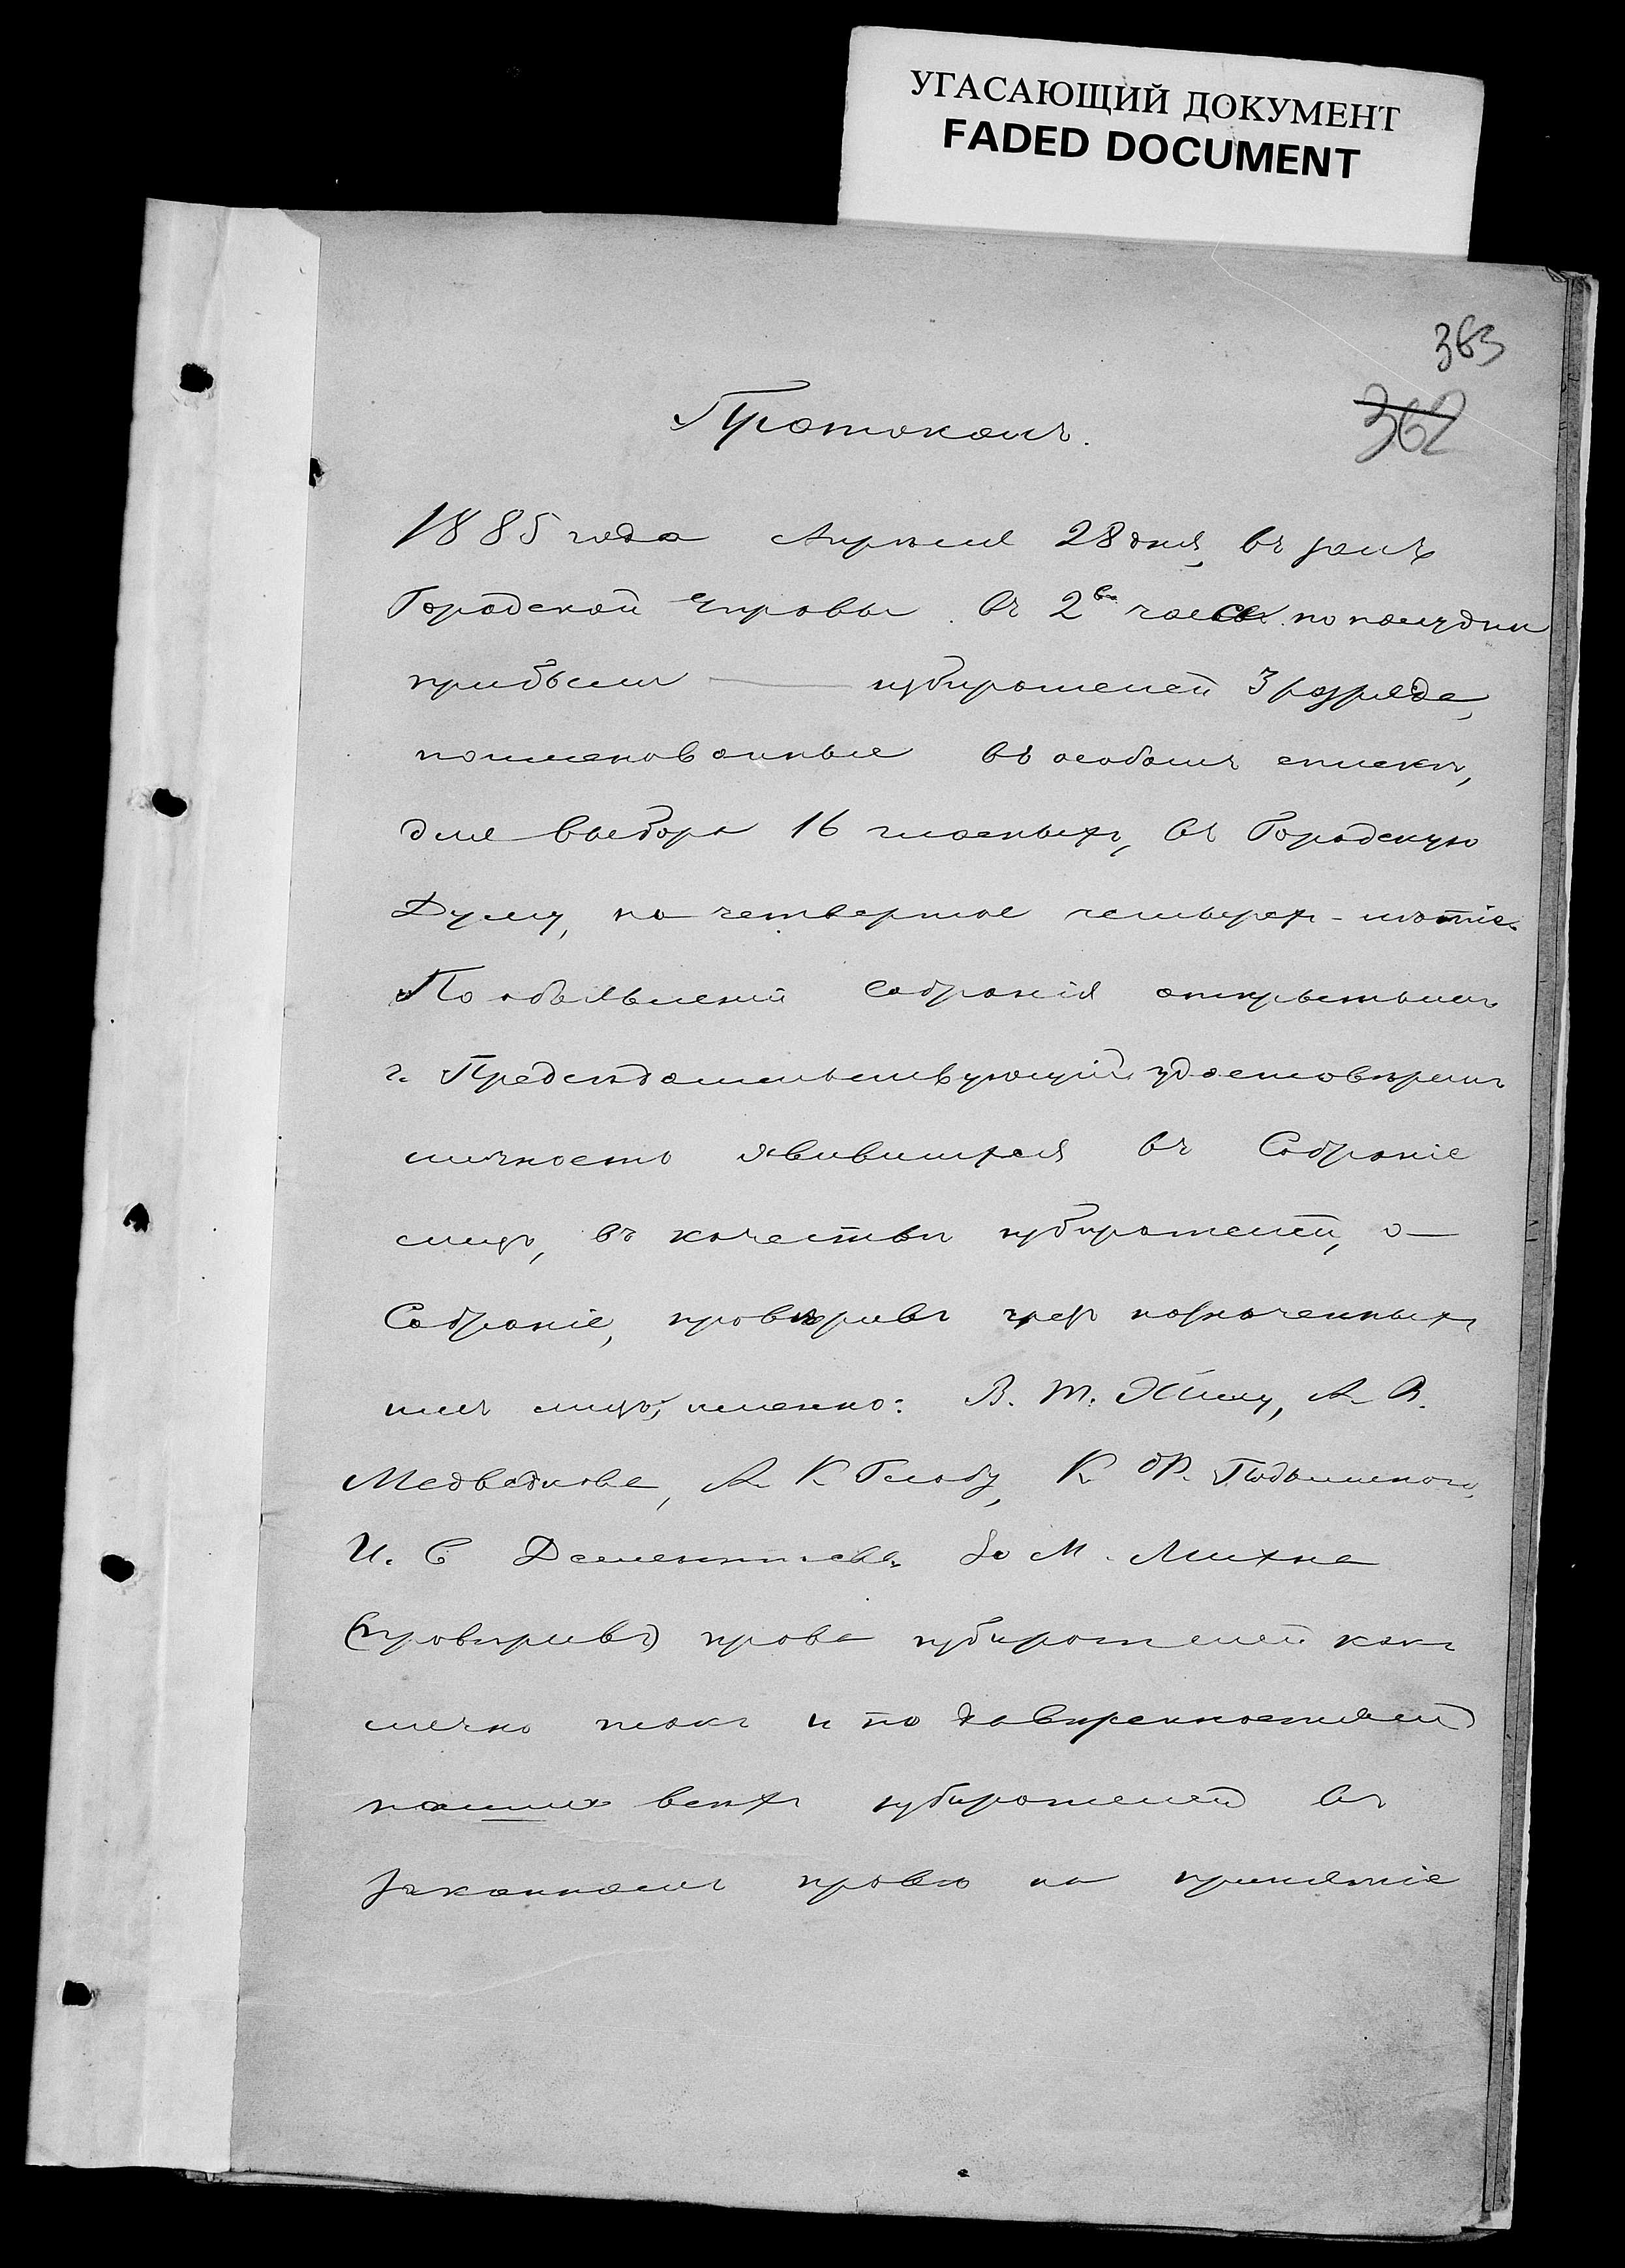 УГАСАЮЩИЙ ДОКУМЕНТ
FADED DOCUMENT
363
362
Протоколъ.
1885 года Апрѣля 28 дня, въ залѣ
Городской Управы въ 2 часа по полудни
прибыли — избирателей 3 разряда,
поименованные въ особомъ спискѣ,
для выбора 16 гласныхъ, въ Городскую
Думу, на четвертое четырех-лѣтіе.
По объявленіи Собранія открытымъ
г. Предсѣдательствующій удостовѣрилъ
личность явившихся въ Собраніе
лицъ, въ качествѣ избирателей, а —
Собраніе, провѣривъ чрез назначенныхъ
имъ лицъ, именно: В. Т. А. В.
Медведкова, А. К. Глобу, К. Ф.
И. С. Дементьева М. Михна
(провѣривъ) права избирателей какъ
лично такъ и по довѣренностямъ
нашла всѣхъ избирателей въ
законномъ правѣ на принятіе